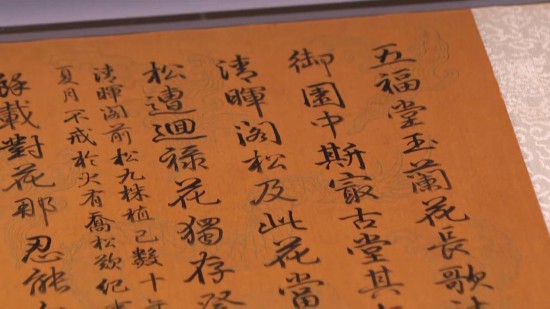 五福堂玉蘭花長歌
御園中斯寂古堂其
清暉閣松及此花當
松遭迴祿花獨存
清暉閣前松九株植已數十
夏月不戒於火有喬松歎紀
載對花那忍